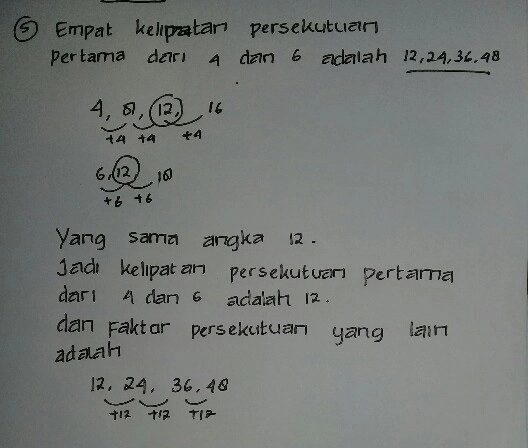 5 Empat kelipatan persekutuan
pertama dari 4 dan 6 adalah 12, 24, 36, 48
4, 8, 12, 16
+4 +4 +4
6, 12, 18
+6 +6
Yang sama angka 12.
Jadi kelipatan persekutuan pertama
dari 4 dan 6 adalah 12.
dan Faktor persekutuan yang lain
adalah
12, 24, 36, 48
+12 +12 +12